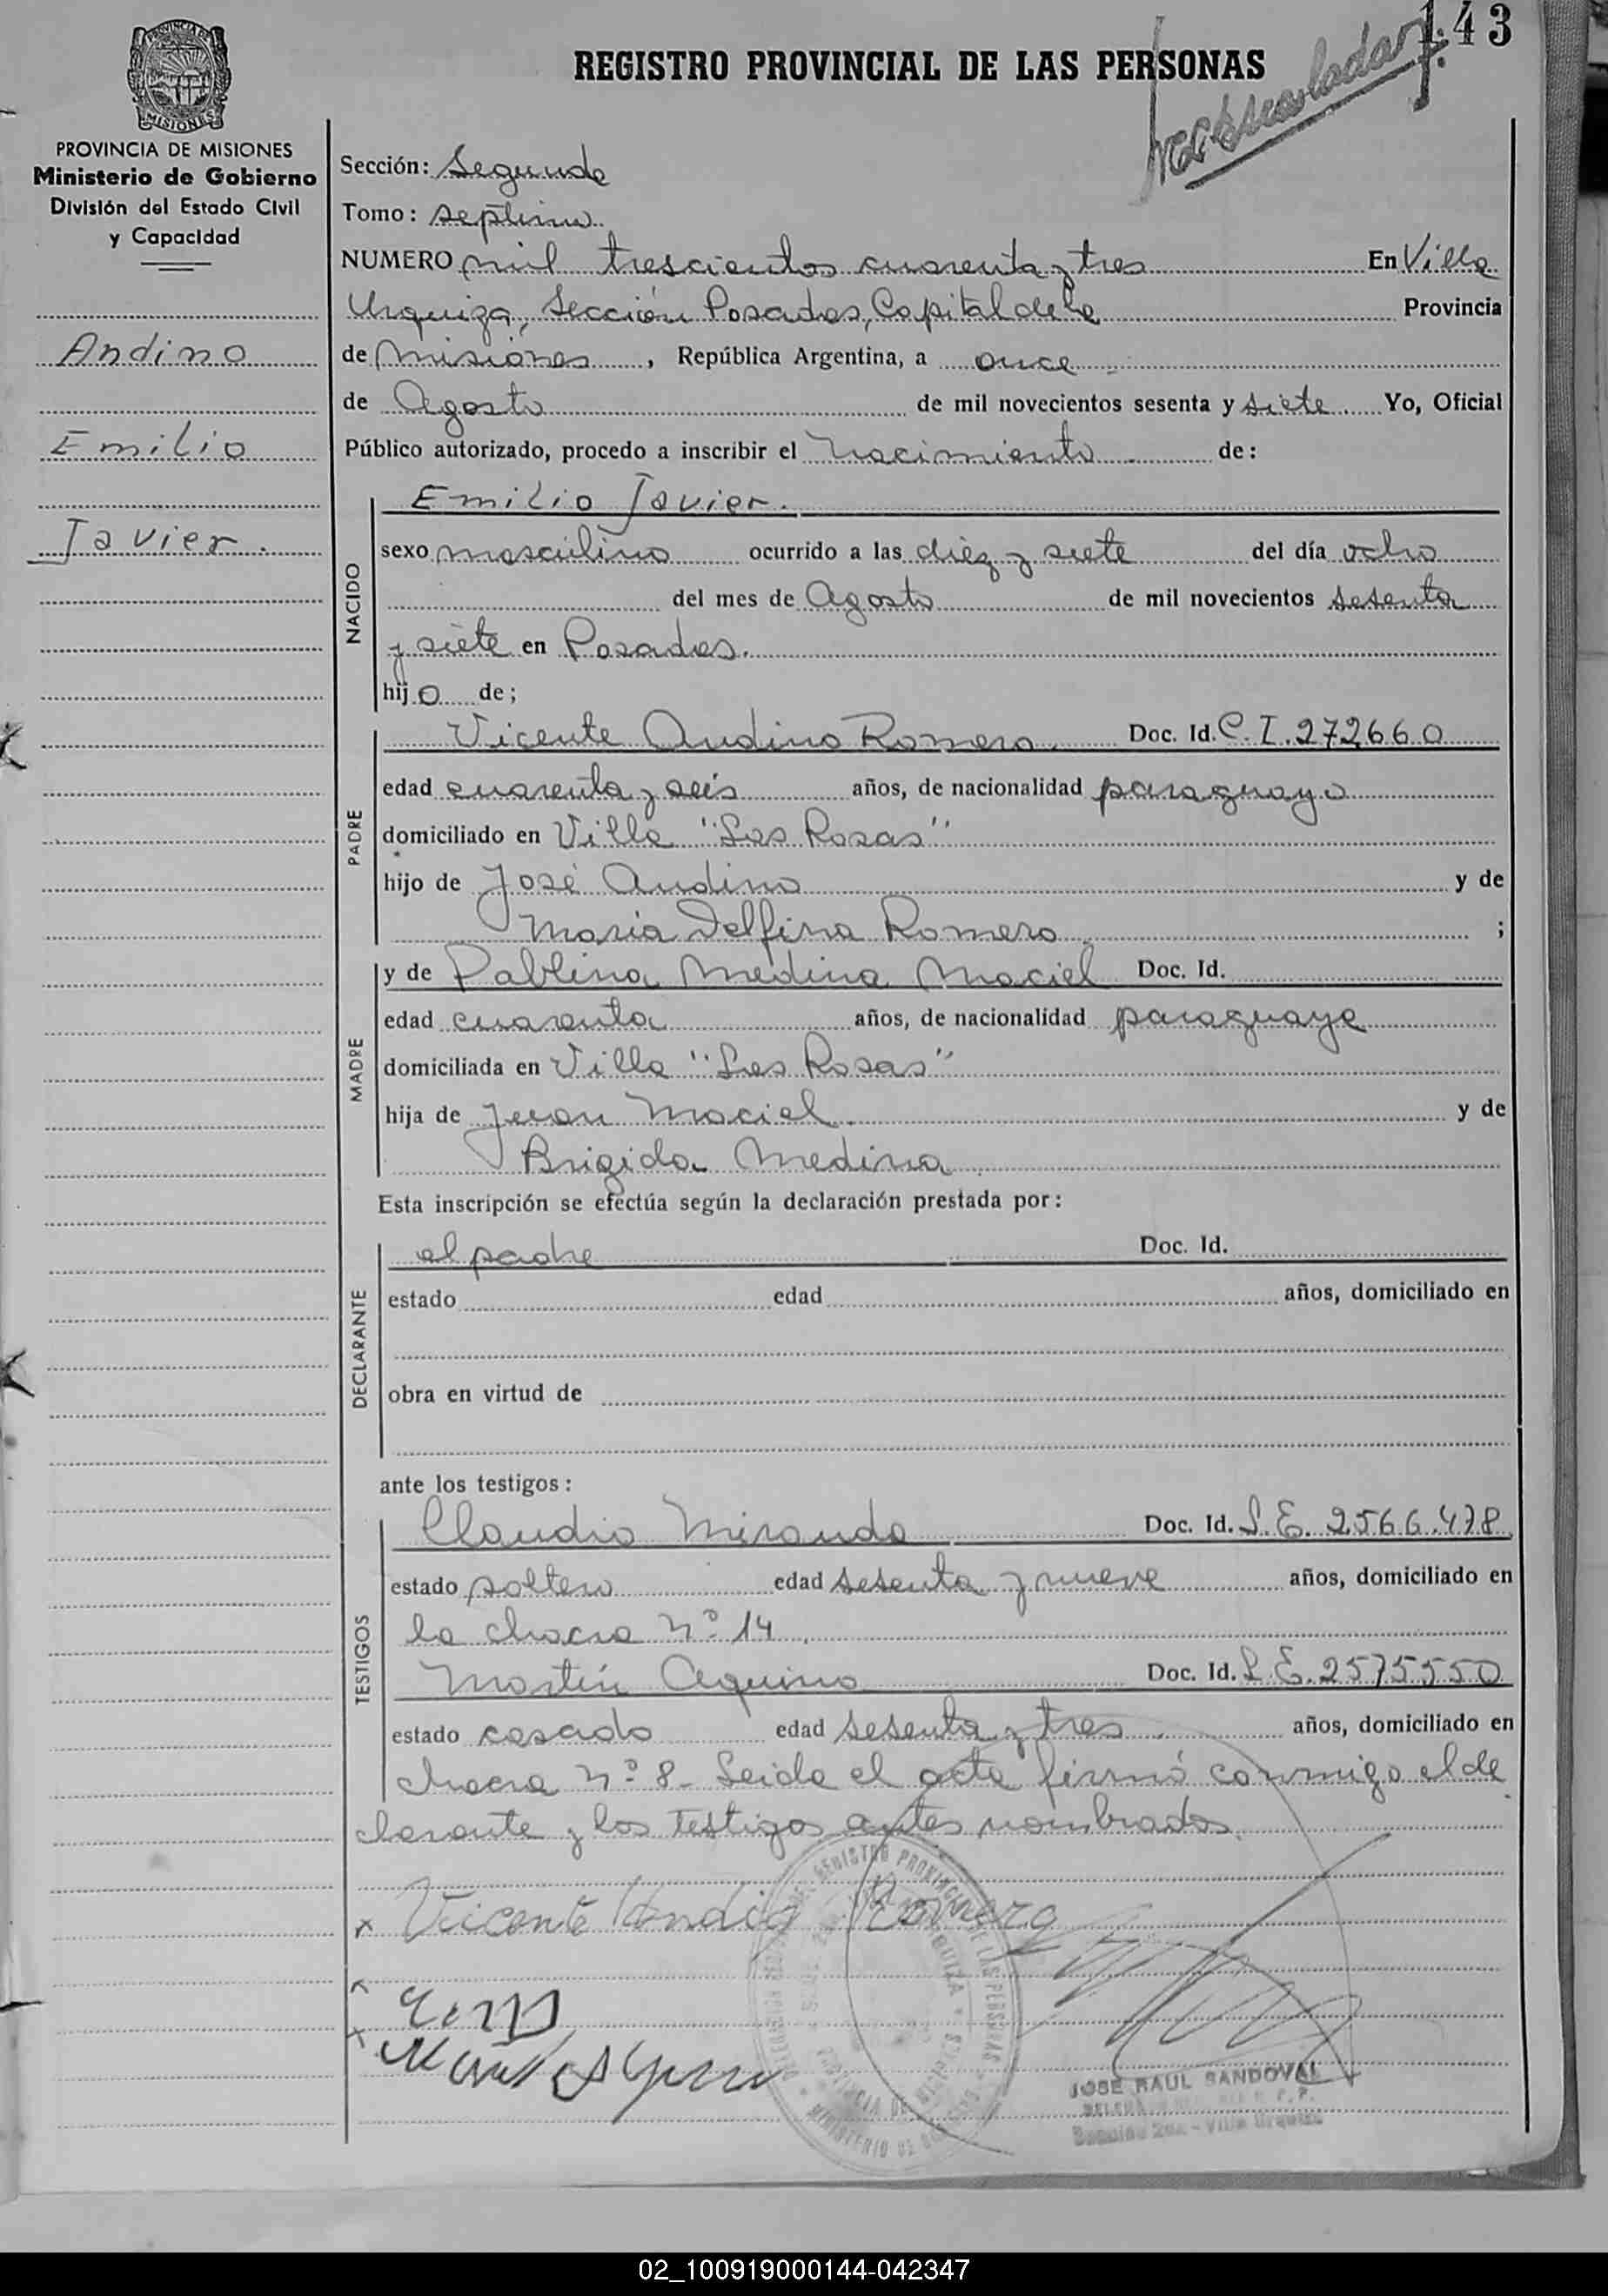 143
REGISTRO PROVINCIAL DE LAS PERSONAS
PROVINCIA DE MISIONES
Ministerio de Gobierno
División del Estado Civil
y Capacidad
Andino
Emilio
Javier.
Sección: Segunda
Tomo: septimo
NUMERO mil trescientos cuarenta y tres En Villa
Urquiza, Sección Posadas, Capital de la Provincia
de Misiones, República Argentina, a once
de Agosto de mil novecientos sesenta y siete Yo, Oficial
Público autorizado, procedo a inscribir el nacimiento de:
NACIDO
Emilio Javier.
sexo masculino ocurrido a las diez y siete del día ocho
del mes de Agosto de mil novecientos sesenta
y siete en Posadas.
hijo de;
PADRE
Vicente Andino Romero. Doc. Id. C. I. 272660
edad cuarenta y seis años, de nacionalidad paraguayo
domiciliado en Villa "Las Rosas"
hijo de José Andino y de
María Delfina Romero ;
MADRE
y de Pablina Medina Maciel Doc. Id.
edad cuarenta años, de nacionalidad paraguaya
domiciliada en Villa "Las Rosas"
hija de Juan Maciel y de
Brigida Medina
Esta inscripción se efectúa según la declaración prestada por:
DECLARANTE
el padre Doc. Id.
estado edad años, domiciliado en
obra en virtud de
ante los testigos:
TESTIGOS
Claudio Miranda Doc. Id. L. E. 2566.478
estado soltero edad sesenta y nueve años, domiciliado en
la chacra nº 14
Martín Aquino Doc. Id. L. E. 2575550
estado casado edad sesenta y tres años, domiciliado en
chacra nº 8- Leida el acta firmó conmigo el de
clarante y los testigos antes nombrados.
Vicente Andino Romero
JOSE RAUL SANDOVAL
02_100919000144-042347